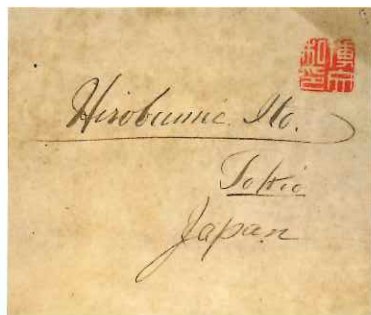 博文
私印
Hirobumi Ito.
Tokio
Japan